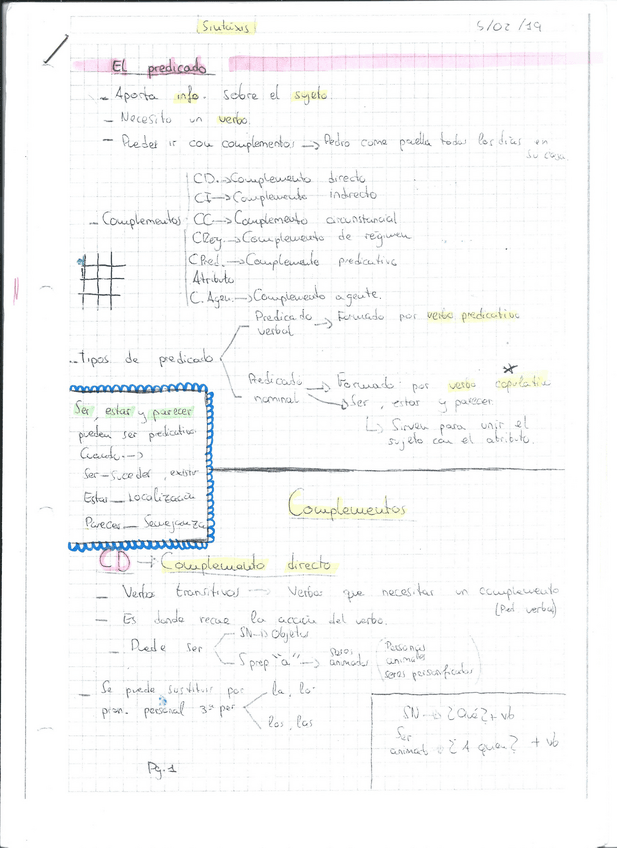 Sintáxis
5/02/19
El predicado
- Aporta info. sobre el sujeto.
- Necesita un verbo.
- Puedes ir con complementos → Pedro come paella todos los días en
su casa
- Complementos
CD. → Complemento directo
CI → Complemento indirecto
CC → Complemento circunstancial
CReg → Complemento de régimen
C.Pred. → Complemento predicativo
Atributo
C. Agen. → Complemento agente.
- Tipos de predicado
Predicado verbal → Formado por verbo predicativo
Predicado nominal → Formado por verbo copulativo
→ Ser, estar y parecer
↳ Sirven para unir el
sujeto con el atributo.
Ser, estar y parecer
pueden ser predicativos
Cuando →
Ser - suceder, existir
Estar - Localización
Parecer - Semejanza
Complementos
CD → Complemento directo
- Verbos transitivos → Verbos que necesitan un complemento
(Pred. verbal)
- Es donde recae la acción del verbo.
- Puede ser
SN → Objetos
S prep "a" → seres animados (Personas
animales
seres personificados)
- Se puede sustituir por
pron. personal 3ª per
la, lo
los, las
SN → ¿Qué? + vb
Ser
animado → ¿A quién? + vb
Pg. 1